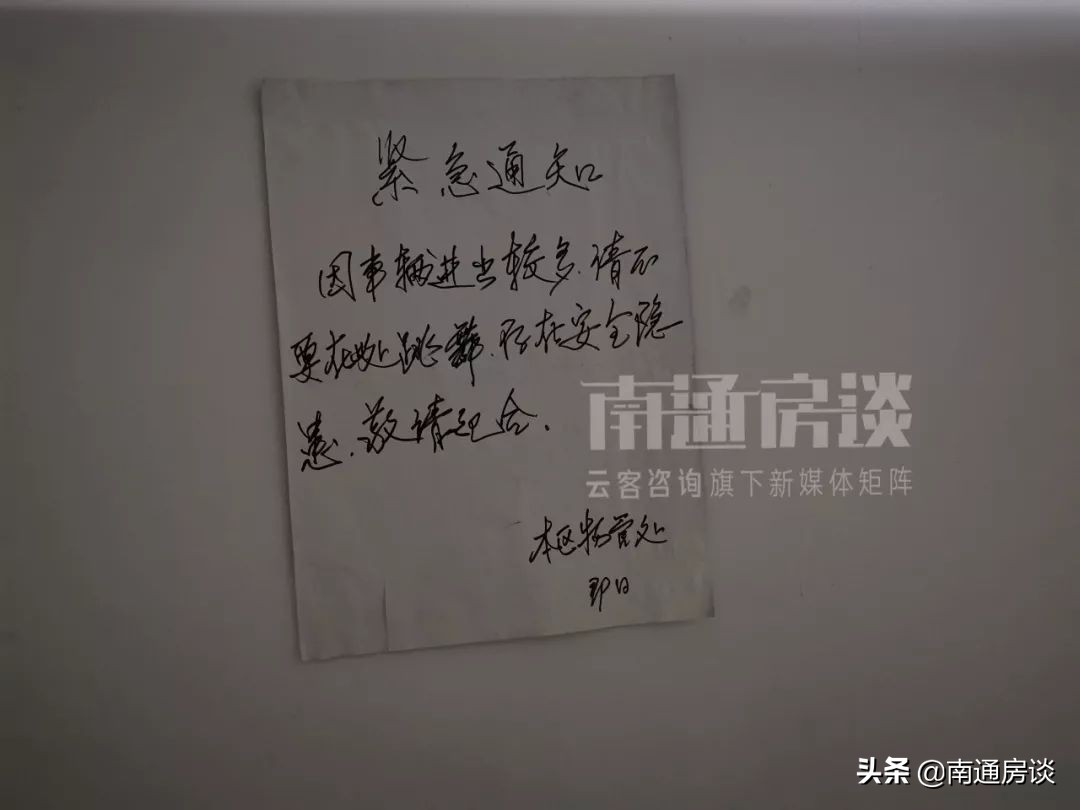 紧急通知
因车辆进出较多、请不
要在此处跳舞、存在安全隐
患、敬请配合、
本区物管处
即日
南通房谈
云客咨询旗下新媒体矩阵
头条 @南通房谈